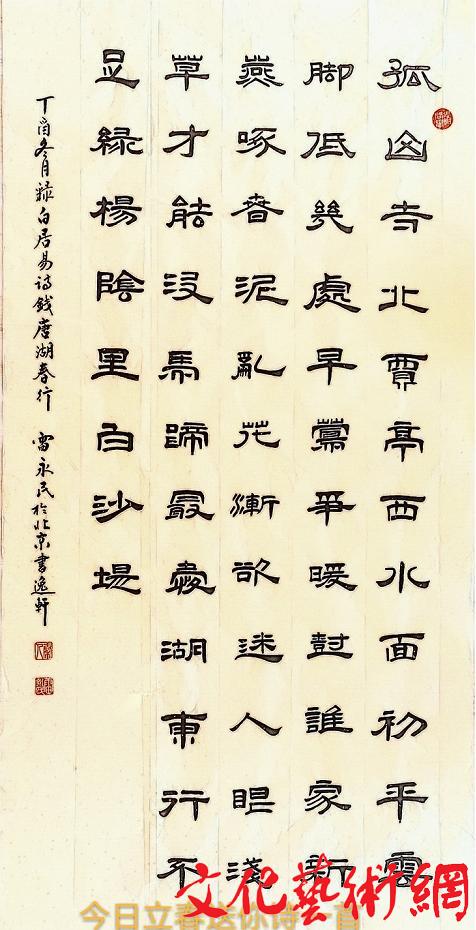 孤山寺北賈亭西水面初平雲
脚低幾處早鶯爭暖樹誰家新
燕啄春泥亂花漸欲迷人眼淺
草才能沒馬蹄最愛湖東行不
足綠楊陰里白沙堤
丁酉冬月錄白居易诗錢唐湖春行 雷永民於北京書逸軒
文化藝術網
今日立春送你诗一首